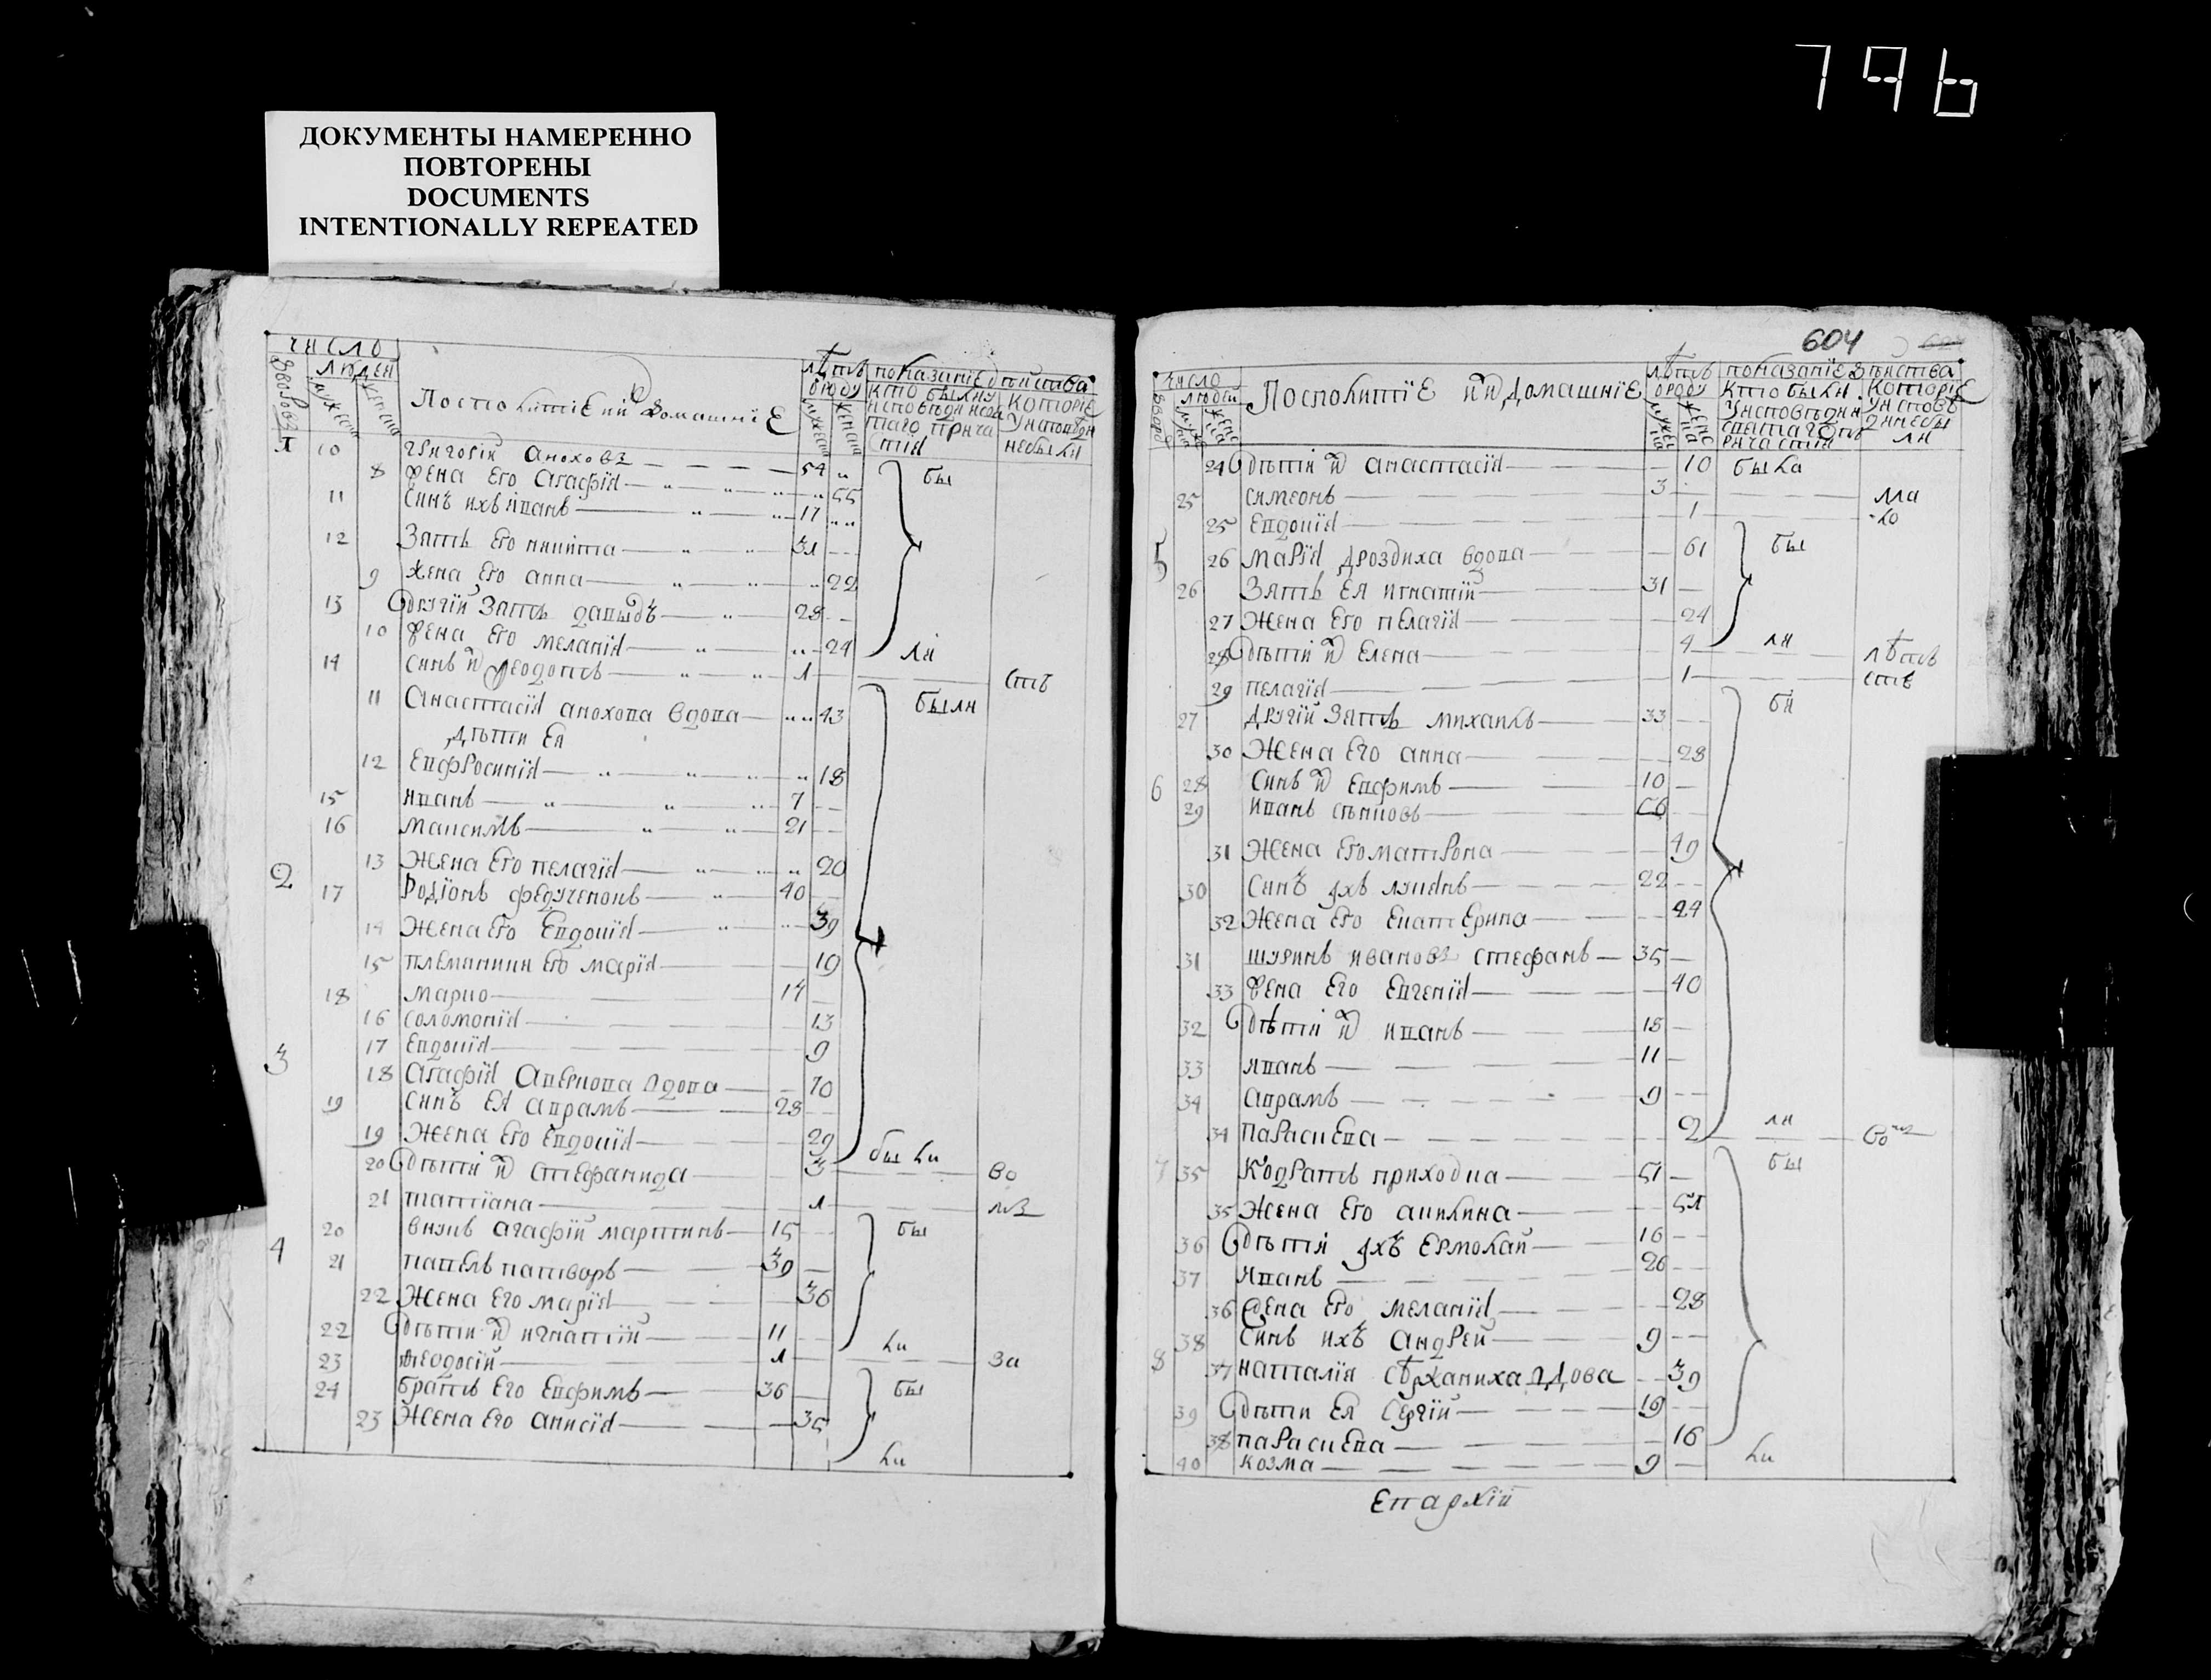 796
ДОКУМЕНТЫ НАМЕРЕННО
ПОВТОРЕНЫ
DOCUMENTS
INTENTIONALLY REPEATED
число
людей
Посполитїе ий домашнїе
лѣтъ
ѿроду
показанїе дѣйства
кто были у
исповѣди
таго прича
стїя
которїе
у исповѣди
небыли
10 Григорїй Анохов 54
8 Жена его Агафїя 55 бы
11 Синъ ихъ Иванъ 17
12 Зять его Никита 31
9 Жена его Анна 22
13 Другїй зять Давыдъ 28
10 Жена его Меланїя 24 ли
14 Синъ их Феодотъ 1 стъ
11 Анастасїя Анохова вдова 43 были
Дѣти ея
12 Евфросинїя 18
15 Иванъ 7
16 Максимъ 21
13 Жена его Пелагїя 20
2 17 Родїонъ Федученковъ 40
14 Жена его Евдокїя 39
15 племяники его Марїя 19
18 Марко 14
16 Соломонїя 13
17 Евдокїя 9
3 18 Агафїя Аверкова вдова 70
19 Синъ ея Аврамъ 28
19 Жена его Евдокїя 29 были
20 Дѣти их Стефанида 3 во
21 Татїана 1
20 внукъ Агафїй Мартинъ 15 бы
4 21 Павелъ 39
22 Жена его Марїя 36
22 Дѣти их Игнатїй 11 ли
23 Феодосїй 1 за
24 братъ его Евфимъ 36 бы
23 Жена его Анисїя 35 ли
604
число
людей
Посполитїе ий домашнїе
лѣтъ
ѿроду
показанїе дѣйства
кто были
у исповѣди
которїе
у исповѣ
ди небы
ли
24 Дѣти их Анастасїя 10 была
25 Симеонъ 3 мла
25 Евдокїя 1
5 26 Марїя Дроздиха вдова 61 бы
26 Зять ея Игнатїй 31
27 Жена его Пелагїя 24
28 Дѣти их Елена 4 ли лѣтъ
29 Пелагїя 1 ств
27 Другїй зять Михаилъ 33 бы
30 Жена его Анна 28
28 Синъ их Евфимъ 10
6 29 Иванъ 56
31 Жена его Матрона 49
30 Синъ ихъ Лукянъ 22
32 Жена его Екатерина 24
31 шуринъ Иванов Стефанъ 35
33 Жена его Евгенїя 40
32 Дѣти их Иванъ 18
33 Иванъ 11
34 Аврамъ 9
34 Параскева 2 ли во
7 35 Кодратъ Приходка 51 бы
35 Жена его Акилина 51
36 Дѣти ихъ Ермолай 16
37 Иванъ 26
36 Жена его Меланїя 28
38 Синъ ихъ Андрей 9
8 37 Наталїя вдова 39
39 Дѣти ея Сергїй 19
38 Параскева 16
40 Козма 9 ли
Епархїй